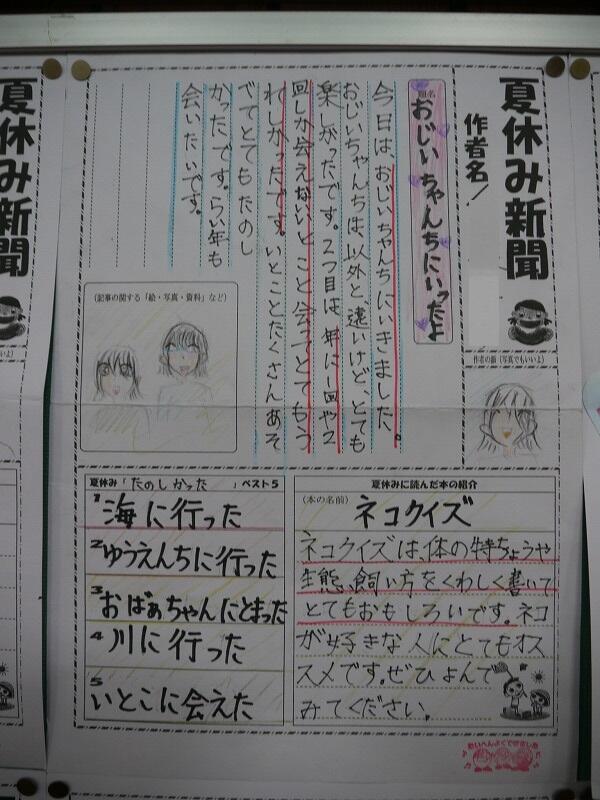 夏休み新聞
作者名!
作者の顔(写真でもいいよ)
題名
おじいちゃんちにいったよ
今日は、おじいちゃんちにいきました。
おじいちゃんちは、以外と、遠いけど、とても
楽しかったです。2つ目は、年に一回や2
回しか会えないいとこと会ってとてもう
れしかったです。いとことたくさんあそ
べてとてもたのし
かったです。らい年も
会いたいです。
(記事の関する「絵・写真・資料」など)
夏休みに読んだ本の紹介
(本の名前)
ネコクイズ
ネコクイズは、体の特ちょうや
生態、飼い方をくわしく書いて
とてもおもしろいです。ネコ
が好きな人にとてもオス
スメです。ぜひよんで
みてください。
夏休み「たのしかった」ベスト5
1 海に行った
2 ゆうえんちに行った
3 おばあちゃんにとまった
4 川に行った
5 いとこに会えた
たいへんよくできました
夏休み新聞
夏休み新聞